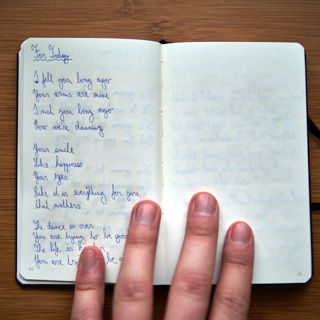 For Today
I fell you long ago
Your arms are mine
I met you long ago
You were dancing
Your smile
Like happiness
Your eyes
Like it is everything for you
that matters
The dance is over
You are trying to be
The life is
You are